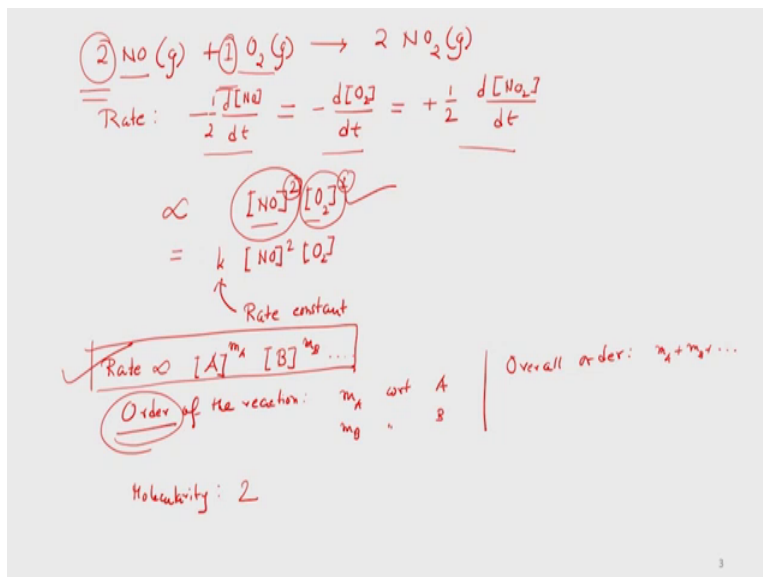 2 NO (g) + 1 O₂ (g) → 2 NO₂ (g)
Rate : - 1/2 d[NO]/dt = - d[O₂]/dt = + 1/2 d[NO₂]/dt
∝ [NO]² [O₂]¹
= k [NO]² [O₂]
Rate constant
Rate ∝ [A]^m_A [B]^m_B ....
Order of the reaction : m_A wrt A
m_B " B
Overall order : m_A + m_B + ...
Molecularity : 2
3